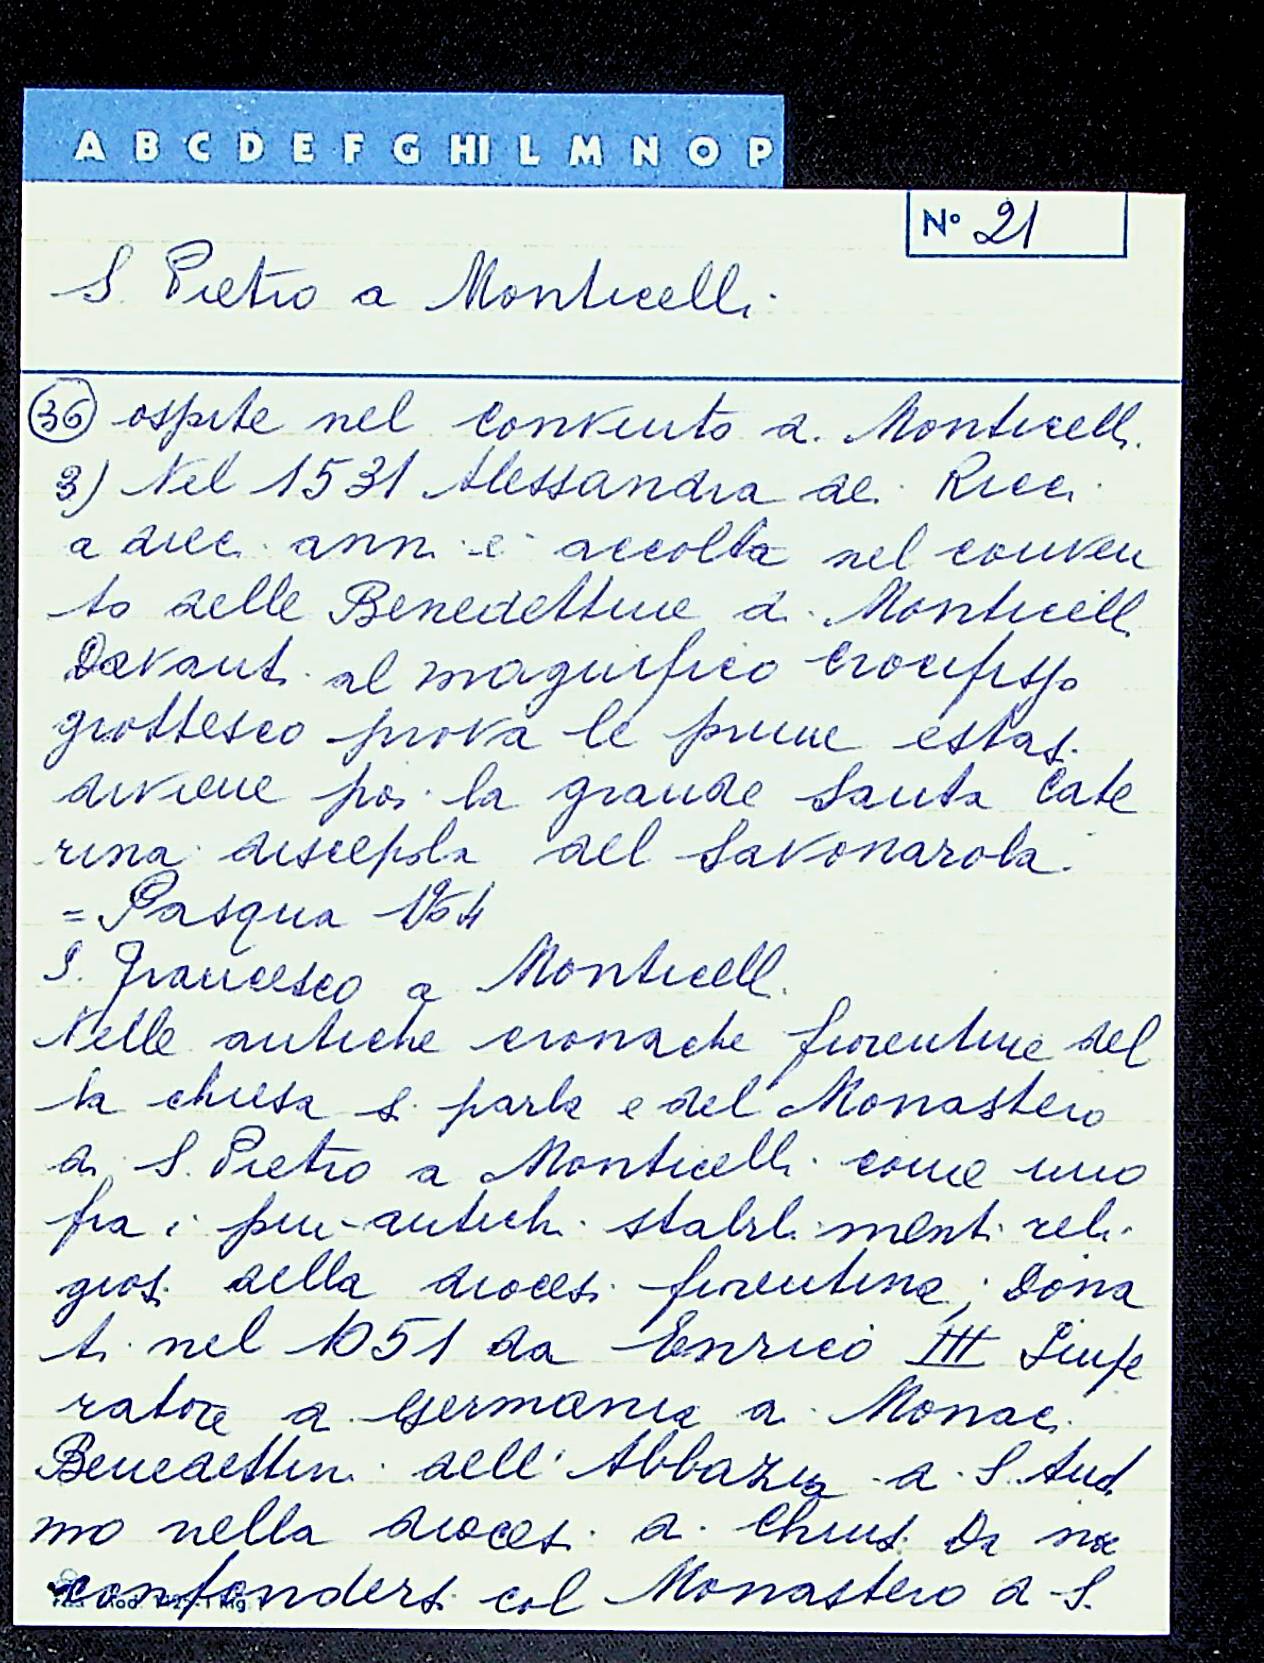 A B C D E F G HI L M N O P
N° 21
S. Pietro a Monticelli.
36 ospite nel convento di Monticelli.
3) Nel 1531 Alessandra dei Ricci
a dieci anni è accolta nel conven
to delle Benedettine di Monticelli
Davanti al magnifico Crocifisso
giottesco prova le prime estasi.
diviene poi la grande Santa Cate
rina discepola del Savonarola.
= Pasqua 1964
S. Francesco a Monticelli.
Nelle antiche cronache fiorentine del
la chiesa si parla e del Monastero
di S. Pietro a Monticelli come uno
fra i piu antichi stabilimenti reli
giosi della diocesi fiorentina; Dona
ti nel 1051 da Enrico III Impe
ratore di Germania ai Monaci
Benedettini dell'Abbazia di S. Anti
mo nella diocesi di Chiusi Da no
confondersi col Monastero di S.